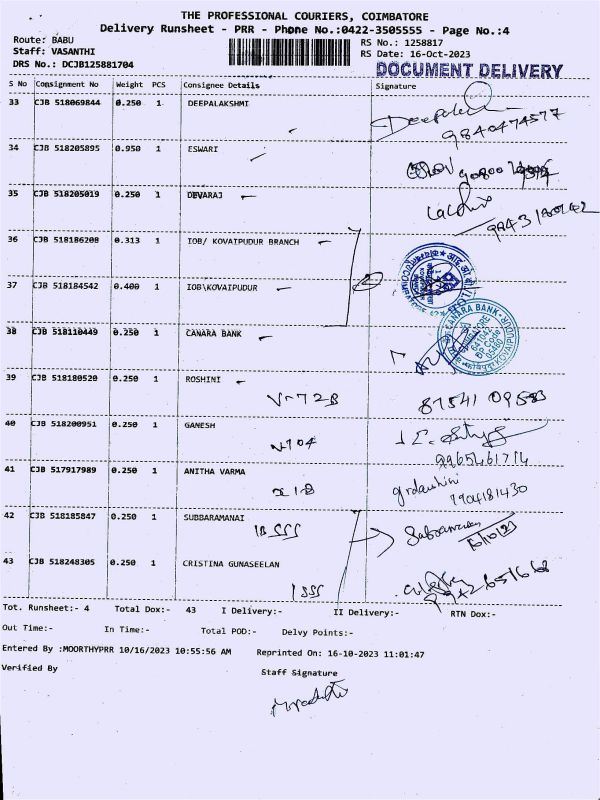 THE PROFESSIONAL COURIERS, COIMBATORE
Delivery Runsheet - PRR - Phone No.:0422-3505555 - Page No.:4
Route: BABU RS No.: 1258817
Staff: VASANTHI RS Date: 16-Oct-2023
DRS No.: DCJB125881704 DOCUMENT DELIVERY
S No Consignment No Weight PCS Consignee Details Signature
33 CJB 518069844 0.250 1 DEEPALAKSHMI
9840474577
34 CJB 518205895 0.950 1 ESWARI
35 CJB 518205019 0.250 1 DEVARAJ
36 CJB 518186208 0.313 1 IOB/ KOVAIPUDUR BRANCH
37 CJB 518184542 0.400 1 IOB\KOVAIPUDUR 2
38 CJB 518110449 0.250 1 CANARA BANK
CANARA BANK
39 CJB 518180520 0.250 1 ROSHINI
V-72B
40 CJB 518200951 0.250 1 GANESH
41 CJB 517917989 0.250 1 ANITHA VARMA
7904181430
42 CJB 518185847 0.250 1 SUBBARAMANAI
16/10/23
43 CJB 518248305 0.250 1 CRISTINA GUNASEELAN
Tot. Runsheet:- 4 Total Dox:- 43 I Delivery:- II Delivery:- RTN Dox:-
Out Time:- In Time:- Total POD:- Delvy Points:-
Entered By :MOORTHYPRR 10/16/2023 10:55:56 AM Reprinted On: 16-10-2023 11:01:47
Verified By Staff Signature